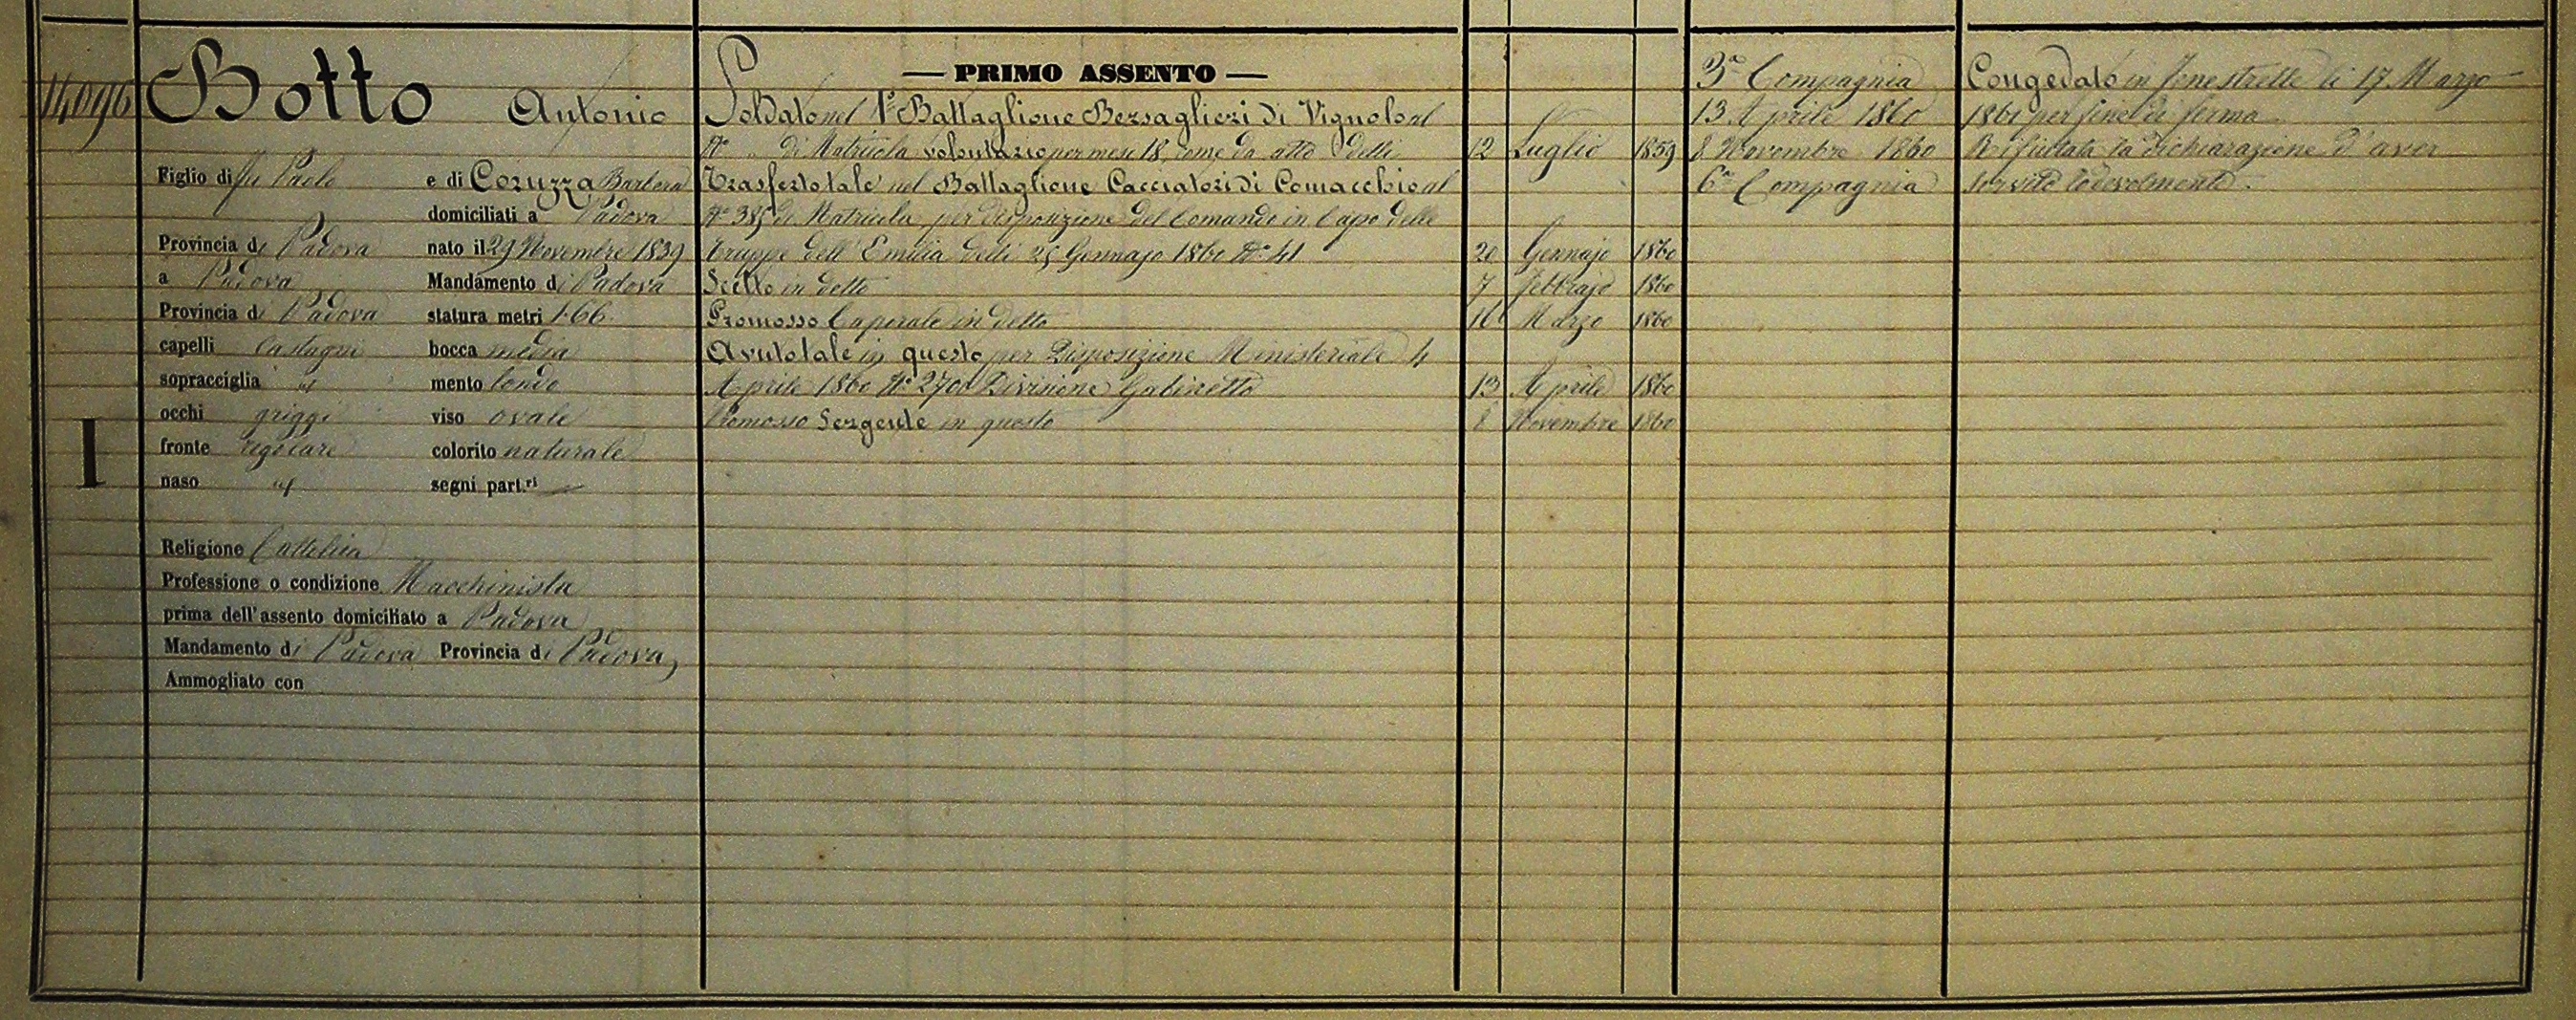 14096
Botto Antonio
Figlio di fu Paolo e di Coruzza Barbara
domiciliati a Padova
Provincia di Padova nato il 29 Novembre 1839
a Padova Mandamento di Padova
Provincia di Padova statura metri 1.66
capelli Castagni bocca media
sopracciglia id mento tondo
occhi griggi viso ovale
fronte regolare colorito naturale
naso id segni part.ri —
I
Religione Cattolica
Professione o condizione Macchinista
prima dell'assento domiciliato a Padova
Mandamento di Padova Provincia di Padova
Ammogliato con
— PRIMO ASSENTO —
Soldato nel 1º Battaglione Bersaglieri di Vignolo al
Nº " di Matricola volontario per mesi 18, come da atto delli 12 Luglio 1859
Trasferto tale nel Battaglione Cacciatori di Comacchio al
Nº 385 di Matricola, per disposizione del Comando in Capo delle
Truppe dell'Emilia delli 25 Gennajo 1860 Nº 41 20 Gennajo 1860
Scelto in detto 7 febbrajo 1860
Promosso Caporale in detto 16 Marzo 1860
Avuto tale in questo per Disposizione Ministeriale 4
Aprile 1860 Nº 2700 Divisione Gabinetto 13 Aprile 1860
Promosso Sergente in questo 8 Novembre 1860
3ª Compagnia
13 Aprile 1860
8 Novembre 1860
6ª Compagnia
Congedato in Fenestrelle li 17 Marzo
1861 per fine di ferma.
Rifiutata la dichiarazione d'aver
servito lodevolmente.